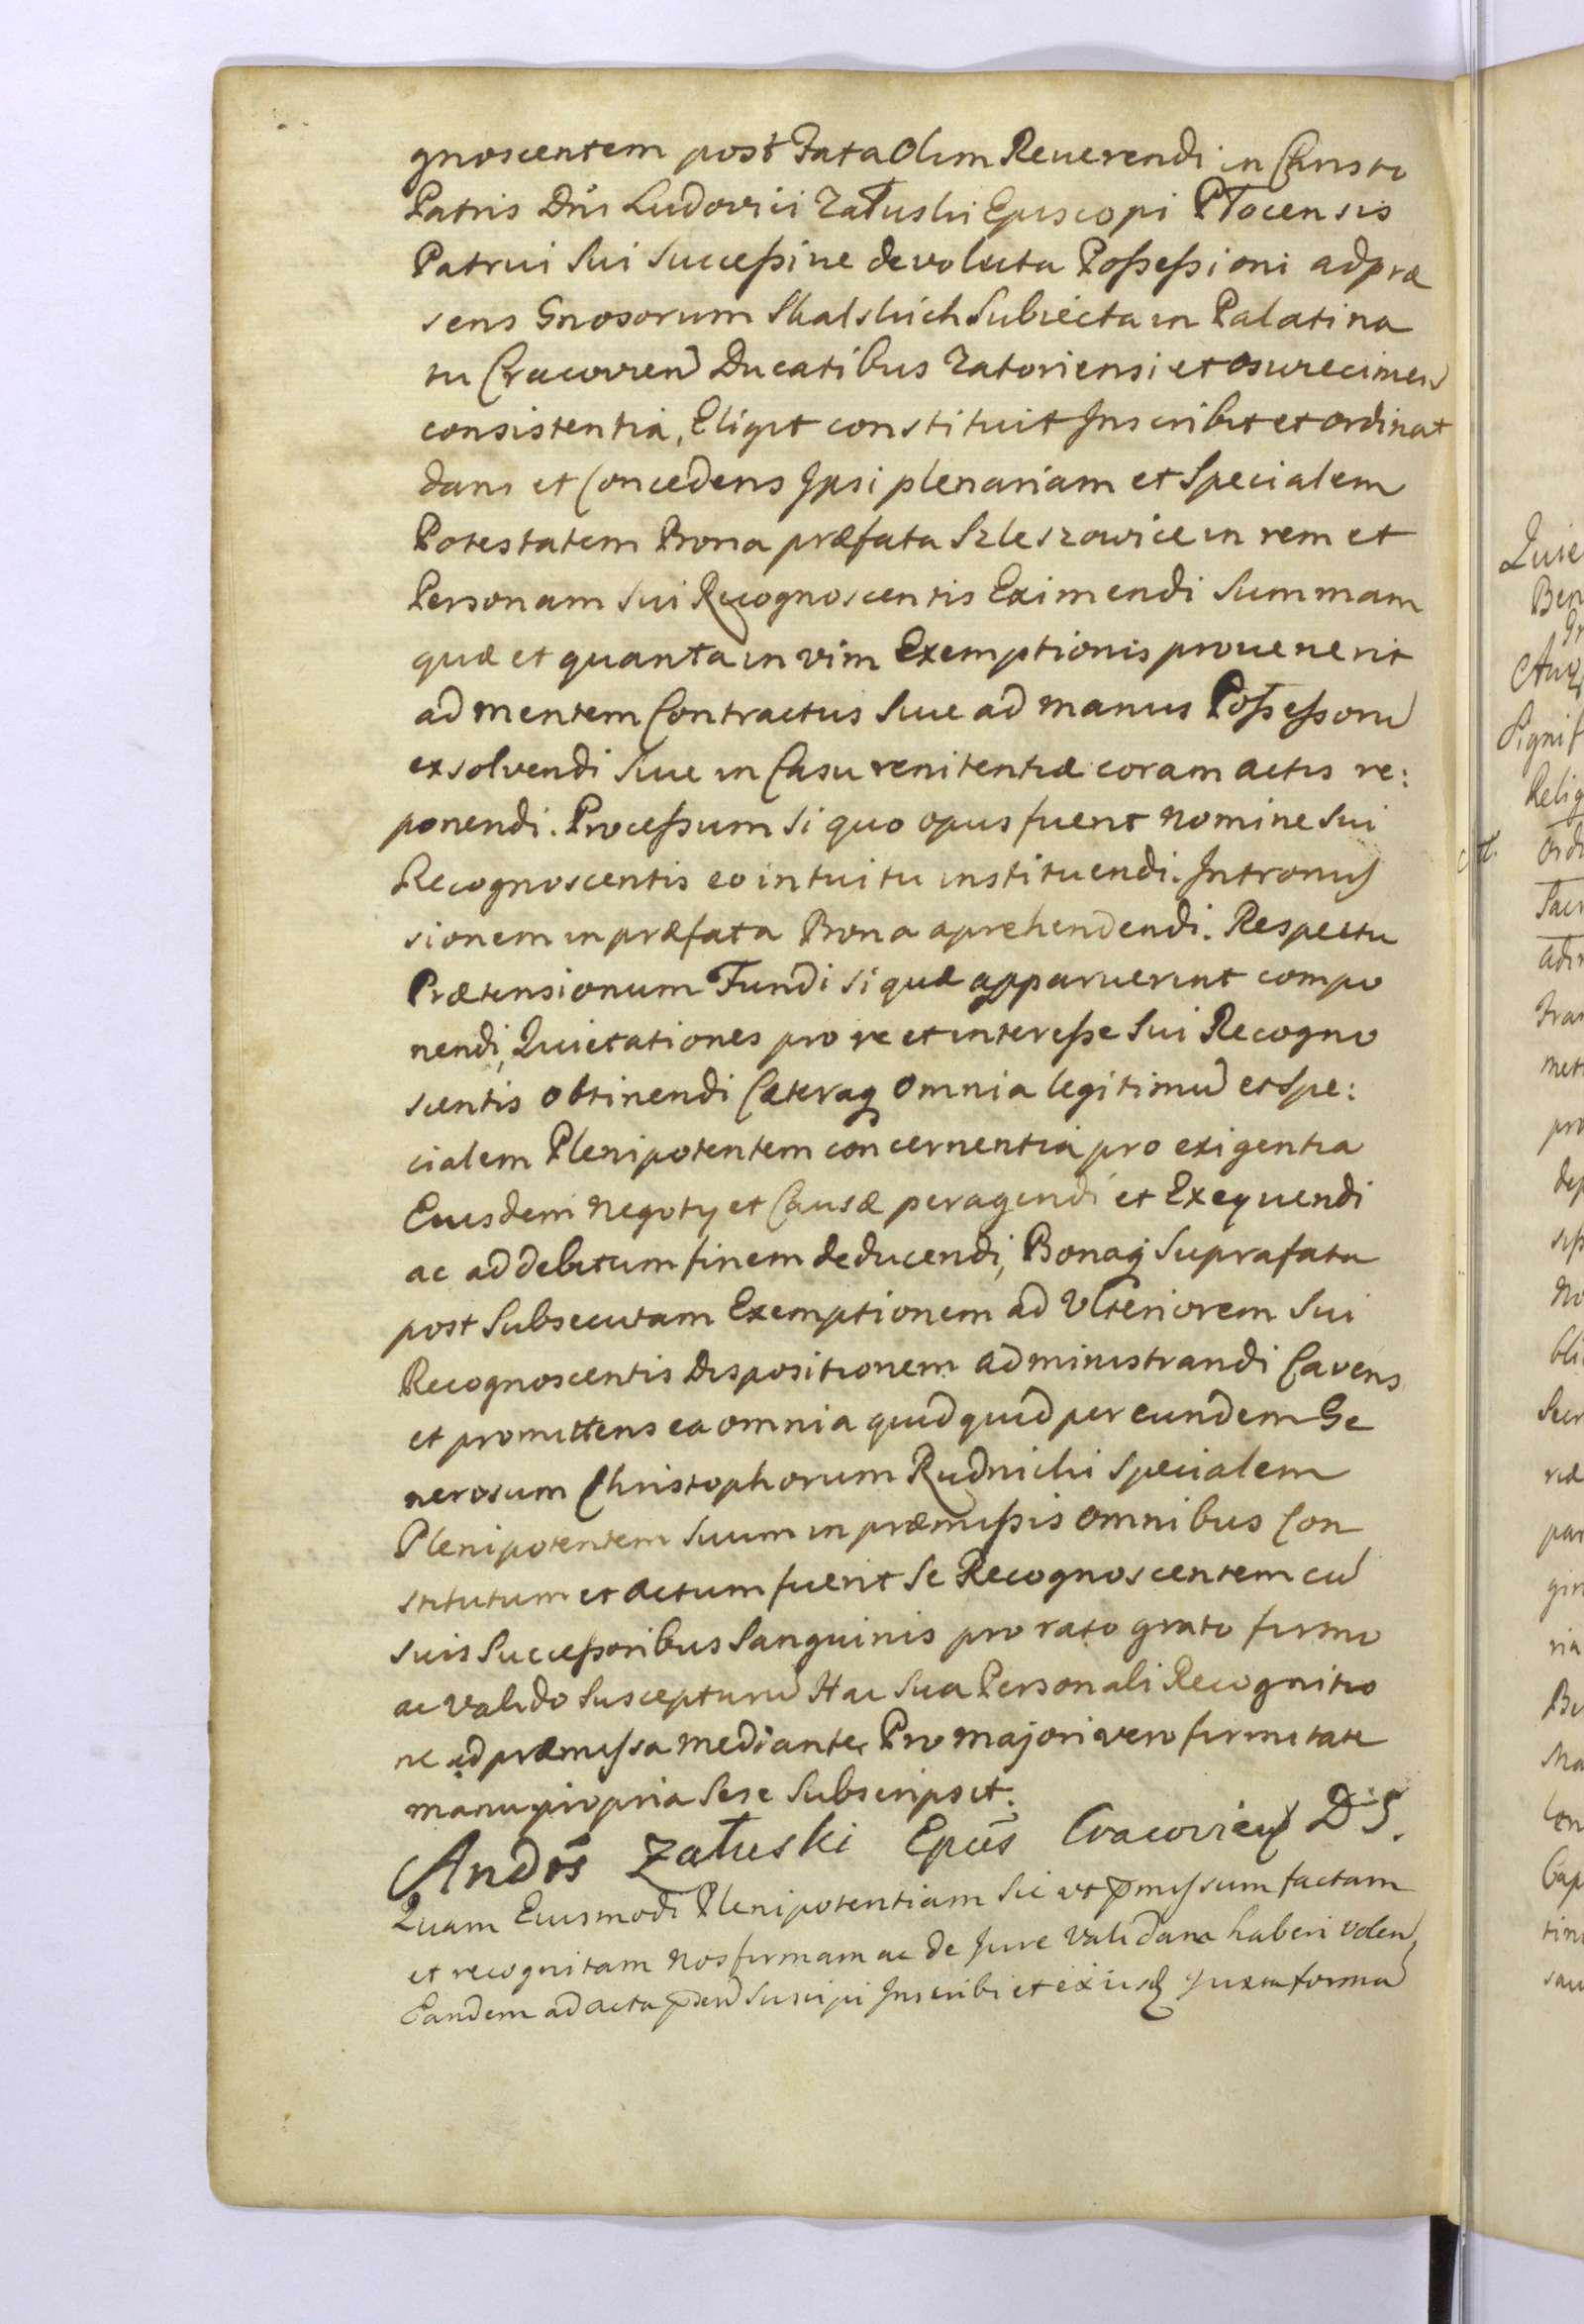 gnoscentem post Fata Olim Reuerendi in Christo
Patris Dni Ludovici Załuski Episcopi Płocensis
Patrui Sui Succeßiue devoluta Poßeßioni ad præ
sens Gnosorum Skalskich Subiecta in Palatina
tu Cracovien Ducatibus Zatoriensi et Oswiecimen
consistentia, Eligit constituit Inscribit et ordinat
dans et Concedens Ipsi plenariam et Specialem
Potestatem Bona præfata Szleszowice in rem et
Personam Sui Recognoscentis Eximendi Summam
quæ et quanta in vim Exemptionis prouenerit
ad mentem Contractus Siue ad manus Poßeßorũ
exsolvendi Siue in Casu renitentiæ coram actis re:
ponendi. Proceßum Si quo opus fuerit nomine Sui
Recognoscentis eo intuitu instituendi. Intromis
sionem in præfata Bona aprehendendi. Respectu
Prætensionum Fundi Si quæ apparuerint compo
nendi, Quietationes pro re et intereße Sui Recogno
scentis obtinendi Cæteraq omnia legitimũ et Spe:
cialem Plenipotentem concernentia pro exigentia
Eiusdem negoty et Causæ peragendi et Exequendi
ac ad debitum finem deducendi, Bonaq Suprafata
post Subsecutam Exemptionem ad Ulteriorem Sui
Recognoscentis Dispositionem administrandi Cavens
et promittens ea omnia quidquid per eundem Ge
nerosum Christophorum Rudnicki Specialem
Plenipotentem Suum in præmißis omnibus Con
stitutum et actum fuerit Se Recognoscentem cũ
suis Succeßoribus Sanguinis pro rato grato firmo
ac valido Suscepturũ Hac Sua Personali Recognitio
ne ad præmissa mediante. Pro majori vero firmitate
manu propria Sese Subscripsit.
Andrs Załuski Epus Cracovien D S.
Quam Eiusmodi Plenipotentiam Sic ut pmissum factam
et recognitam nos firmam ac de Jure validam haberi volen
Eandem ad acta Suscipi Inscribi et ex iisd Juxta formã